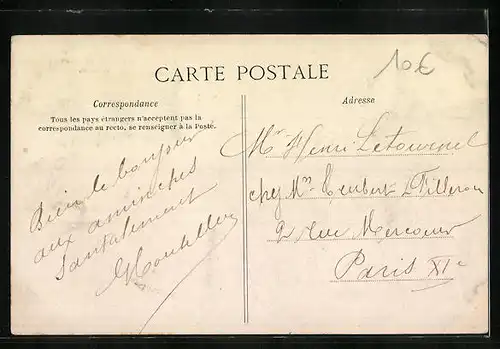 10€
CARTE POSTALE
Correspondance
Tous les pays étrangers n'acceptent pas la
correspondance au recto, se renseigner à la Poste.
Bien le bonjour
aux
Adresse
Mr Henri Letournel
chez Mr
2 rue Mercoeur
Paris XIe